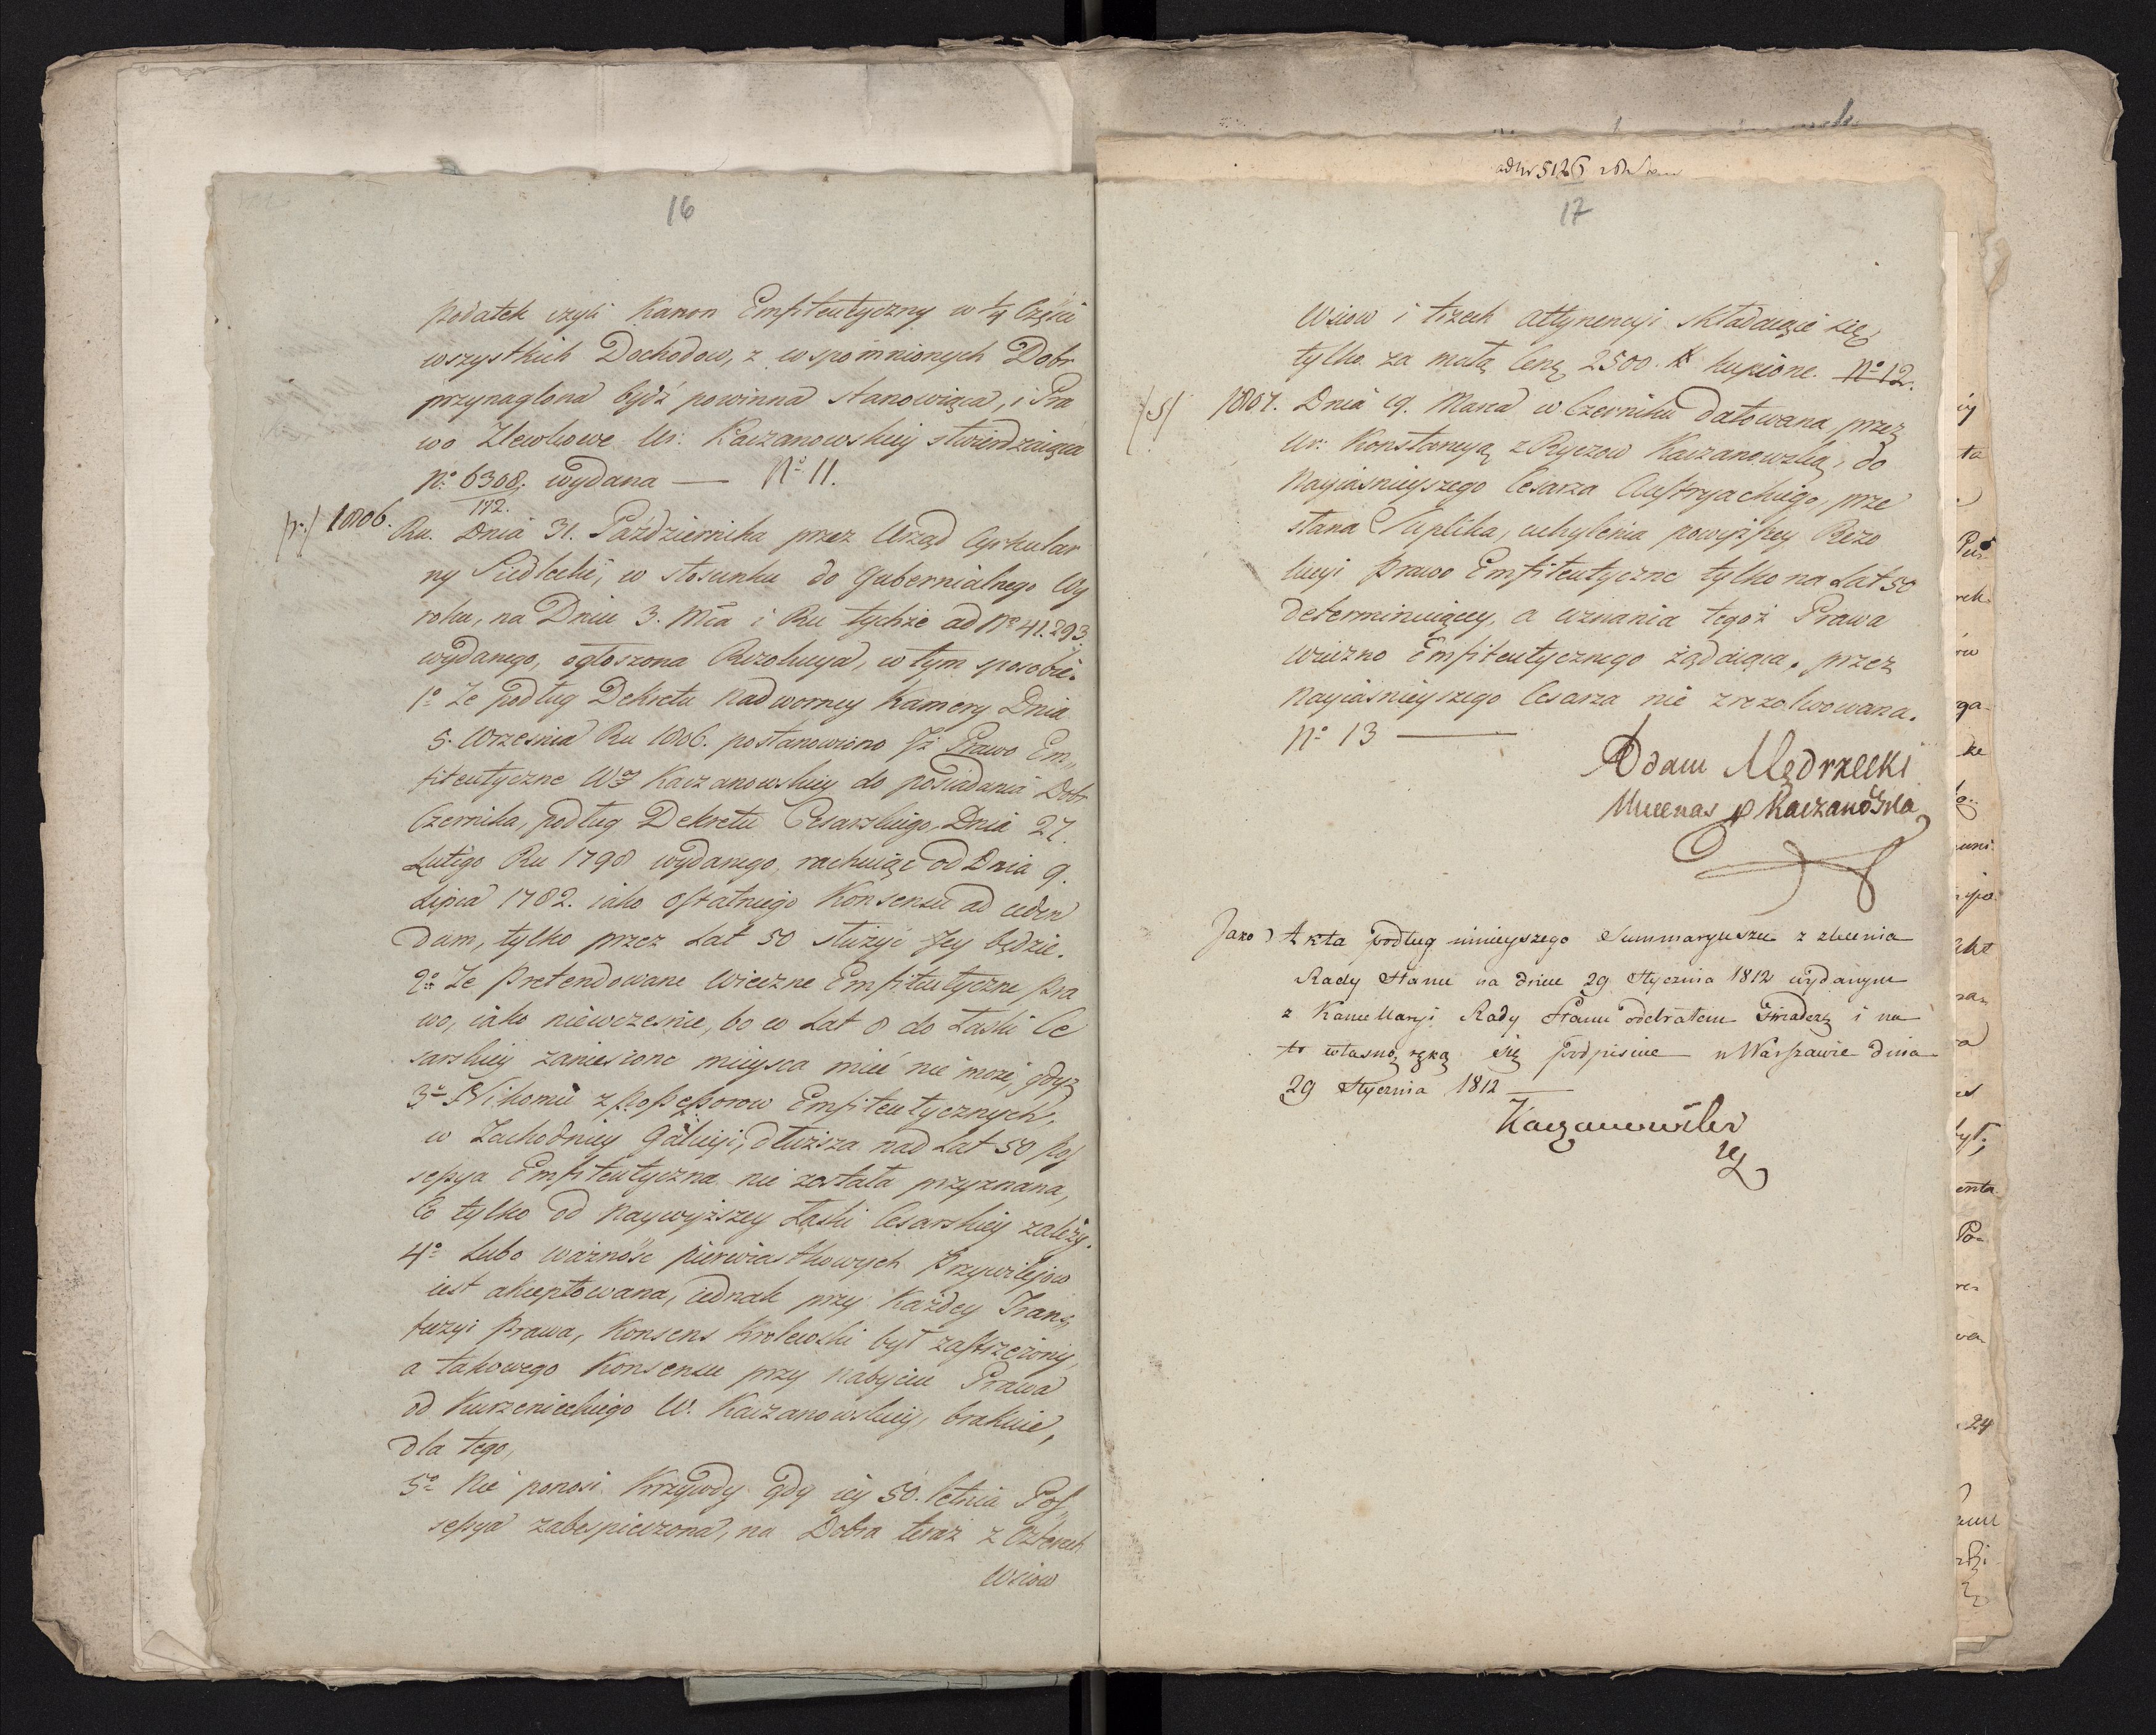 16
podatek czyli Kanon Emfiteutyczny w ¼ Części
wszystkich Dochodow, z wspomnionych Dobr
przynaglona bydź powinna stanowiąca, i Pra
wo Zlewkowe Ur: Kaczanowskiey stwierdzaiąca
No 6308. wydana — No 11.
172.
/r:/ 1806. Ru. Dnia 31. Października przez Urząd Cyrkular
ny Siedlecki, w stosunku do Gubernialnego Wy
roku, na Dniu 3. Mca i Ru tychże ad No 41.293.
wydanego, ogłoszona Rezolucya, w tym sposobie.
1o Ze podług Dekretu Nadworney Kamery Dnia
5. Września Ru 1806. postanowiono Iż Prawo Em„
fiteutyczne Wey Kaczanowskiey do posiadania Dobr
Czernika, podług Dekretu Cesarskiego, Dnia 27.
Lutego Ru 1798 wydanego, rachuiąc od Dnia 9.
Lipca 1782. iako ostatniego Konsensu ad ceden
dum, tylko przez Lat 50 służyć Jey będzie.
2o Ze pretendowane wieczne Emfiteutyczne pra
wo, iako niewcześnie, bo w Lat 8 do Łaski Ce
sarskiey zaniesione mieysca mieć nie może, gdyż
3o Nikomu z possessorow Emfiteutycznych,
w Zachodniey Galicyi, dłuższa nad Lat 50 pos
sessya Emfiteutyczna nie została przyznana,
Co tylko od Naywyższey Łaski Cesarskiey zależy.
4o Lubo ważność pierwiastkowych Przywilejow
iest akceptowana, iednak przy Każdey Trans
fuzyi Prawa, Konsens Krolewski był zastrzeżony,
a takowego Konsensu przy nabyciu Prawa
od Kurzenieckiego W. Kaczanowskiey, brakuie,
dla tego,
5o Nie ponosi Krzywdy gdy iey 50. letnia Pos
sessya zabespieczona, na Dobra teraz z Czterech
Wsiow
ad Nr 5126
17
Wsiow i trzech attynencyi składaiące się,
tylko za małą Cenę 2500. # kupione. No 12.
/s/ 1807. Dnia 19. Marca w Czerniku datowana, przez
Ur: Konstancyą z Ryczow Kaczanowską, do
Nayiaśnieyszego Cesarza Austryackiego, prze
słana Suplika, uchylenia powyższey Rezo
lucyi Prawo Emfiteutyczne tylko na Lat 50
determinuiącey, a uznania tegoż Prawa
wieczno Emfiteutycznego żądaiąca, przez
Nayiaśnieyszego Cesarza nie zrezolwowana.
No 13 ———
Adam Mędrzecki
Mecenas p Kaczanowska
Jako Akta podług ninieyszego Summaryuszu z zlecenia
Rady Stanu na dniu 29 Stycznia 1812 wydanym
z Kancellaryi Rady Stanu odebrałem świadczę i na
to własną ręką się podpisuie w Warszawie dnia
29 Stycznia 1812 —
Kaczanowski